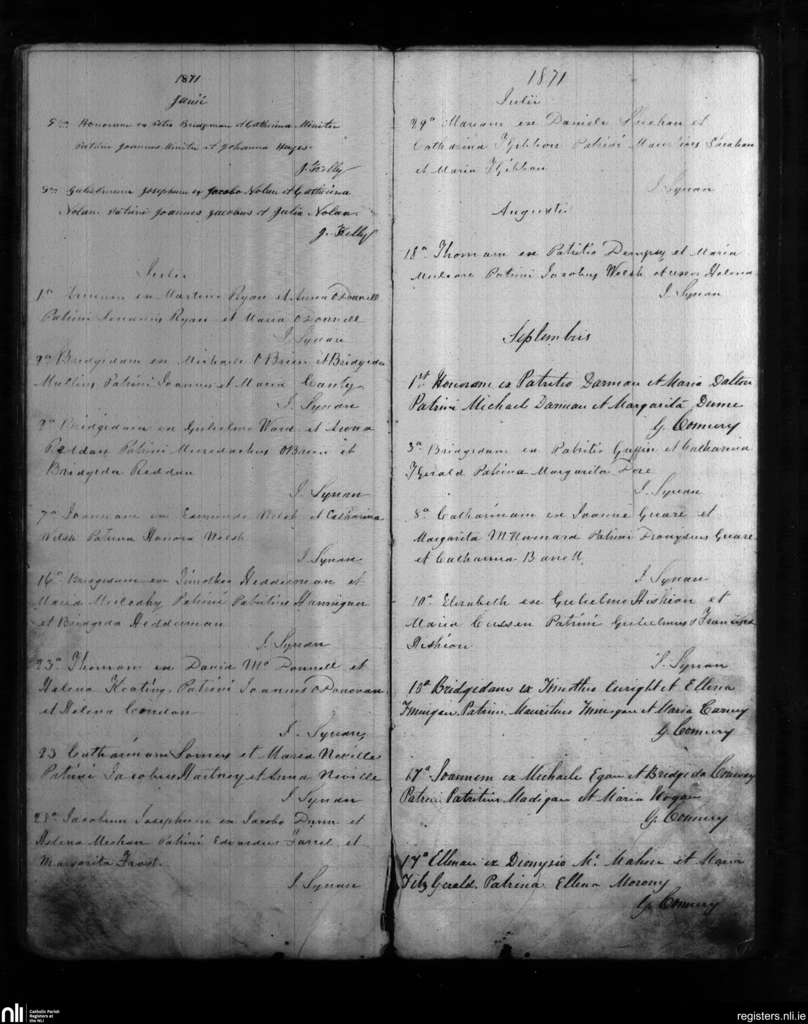 1871
Junii
5ta Honoram ex Petro Bridgman et Catherina Miniter
Patrini Joannes Miniter et Johanna Hayes
J. Kelly
5ta Gulielmum Josephum ex Jacobo Nolan et Catherina
Nolan Patrini Joannes Jacobus et Julia Nolan
J. Kelly
Julii
1a ex Martino Ryan et Anna O'Donnell
Patrini Ryan et Maria O'Donnell
J. Synan
2a Bridgidam ex Michaele O'Brien et Bridgida
Mullins Patrini Joannes et Maria Canty
J. Synan
2a Bridgidam ex Gulielmo Ward et Anna
Reddan Patrini Muredachus O'Brien et
Bridgida Reddan
J. Synan
7a Joannam ex Edmundo Welsh et Catharina
Welsh Patrina Honora Welsh
J. Synan
16a Bridgidam ex Timotheo Hedderman et
Maria Mulcahy Patrini Patritius Hannigan
et Bridgida Hedderman
J. Synan
23a Thomam ex David McDonnell et
Helena Keating Patrini Joannes O'Donovan
et Helena Condon
J. Synan
23 Catharinam Somers et Maria Neville
Patrini Jacobus Hartney et Anna Neville
J. Synan
23a Jacobum Josephum ex Jacobo Dunn et
Helena Meehan Patrini Edvardus Farrel et
Margarita Frost
J. Synan
1871
Julii
29a Mariam ex Daniele et
Catharina FGibbon Patrini Mauritius
et Maria FGibbon
J. Synan
Augusti
18a Thomam ex Patritio Dempsy et Maria
Patrini Jacobus Welsh et uxor Helena
J. Synan
Septembris
1st Honoram ex Patritio Darman et Maria Dalton
Patrini Michael Darman et Margarita Dunne
G. Connery
3a Bridgidam ex Patritio Griffin et Catharina
FGerald Patrina Margarita
J. Synan
8a Catharinam ex Joanne Geare et
Margarita McNamara Patrini Geare
et Catharina Barrett
J. Synan
10a Elizabeth ex Gulielmo Hishion et
Maria Cussen Patrini Gulielmus & Francisca
Hishion
J. Synan
10a Bridgidam ex Timotheo Enright et Ellena
Finnigan Patrini Mauritius Finnigan et Maria Carney
G. Connery
17a Joannem ex Michaele Egan et Bridgida Conway
Patrini Patritius Madigan et Maria Hogan
G. Connery
17a Ellenam ex Dionysio McMahon et Maria
FitzGerald. Patrina Ellena Morony
G. Connery
nli
Catholic Parish
Registers at
the NLI
registers.nli.ie